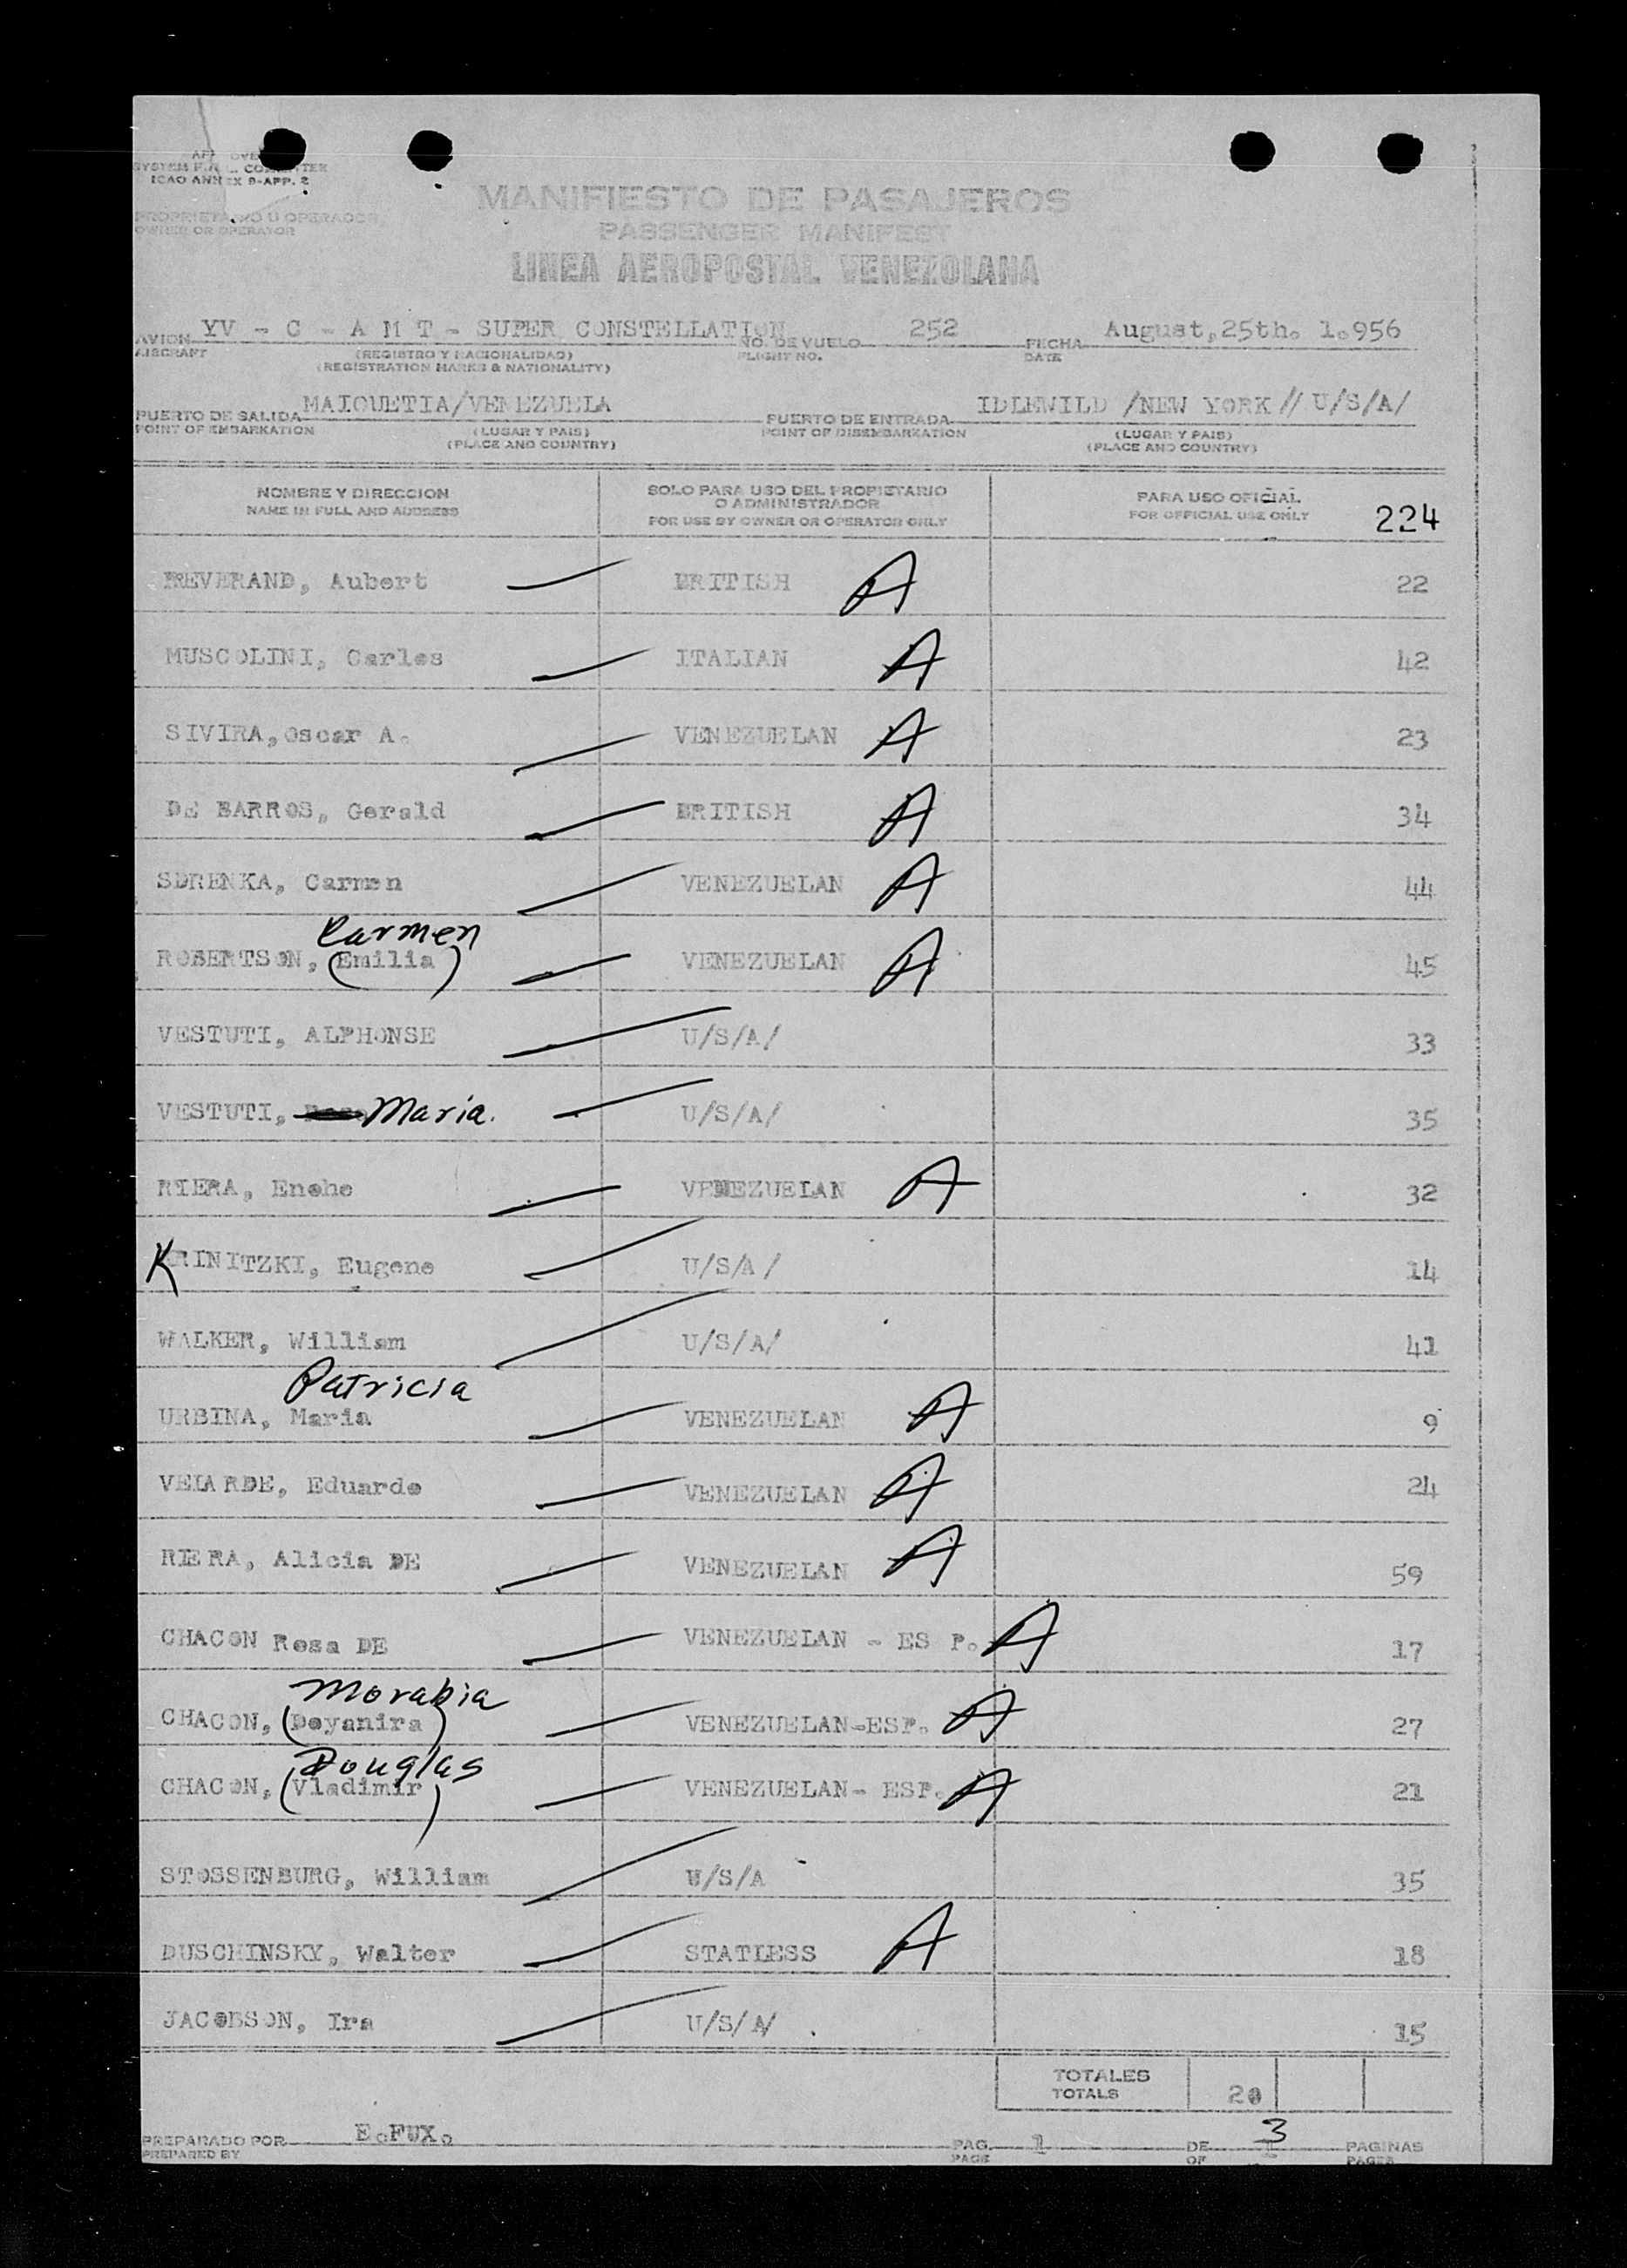 ICAO ANNEX 9-APP. 2
PROPRIETARIO U OPERADOR
OWNER OR OPERATOR
MANIFIESTO DE PASAJEROS
PASSENGER MANIFEST
LINEA AEROPOSTAL VENEZOLANA
AVION YV - C - A M T - SUPER CONSTELLATION NO. DE VUELO 252 FECHA August,25th. 1.956
AIRCRAFT (REGISTRO Y NACIONALIDAD) FLIGHT NO. DATE
(REGISTRATION MARKS & NATIONALITY)
PUERTO DE SALIDA MAIQUETIA/VENEZUELA PUERTO DE ENTRADA IDLEWILD /NEW YORK // U/S/A/
POINT OF EMBARKATION (LUGAR Y PAIS) POINT OF DISEMBARKATION (LUGAR Y PAIS)
(PLACE AND COUNTRY) (PLACE AND COUNTRY)
NOMBRE Y DIRECCION SOLO PARA USO DEL PROPIETARIO PARA USO OFICIAL
NAME IN FULL AND ADDRESS O ADMINISTRADOR FOR OFFICIAL USE ONLY 224
FOR USE BY OWNER OR OPERATOR ONLY
REVERAND, Aubert BRITISH A 22
MUSCOLINI, Carlos ITALIAN A 42
SIVIRA,Oscar A. VENEZUELAN A 23
DE BARROS, Gerald BRITISH A 34
SDRENKA, Carmen VENEZUELAN A 44
Carmen
ROBERTSON, (Emilia) VENEZUELAN A 45
VESTUTI, ALPHONSE U/S/A/ 33
VESTUTI, Maria. U/S/A/ 35
RIERA, Enohe VENEZUELAN A 32
KRINITZKI, Eugene U/S/A/ 14
WALKER, William U/S/A/ 41
Patricia
URBINA, Maria VENEZUELAN A 9
VELARDE, Eduardo VENEZUELAN A 24
RIERA, Alicia DE VENEZUELAN A 59
CHACON Rosa DE VENEZUELAN - ES P. A 17
Morabia
CHACON, (Deyanira) VENEZUELAN-ESP. A 27
Douglas
CHACON, (Vladimir) VENEZUELAN- ESP. A 21
STOSSENBURG, William U/S/A 35
DUSCHINSKY, Walter STATLESS A 18
JACOBSON, Ira U/S/A/ 15
TOTALES
TOTALS 20
PREPARADO POR E.FUX. PAG. 1 DE 3 PAGINAS
PREPARED BY PAGE OF PAGES